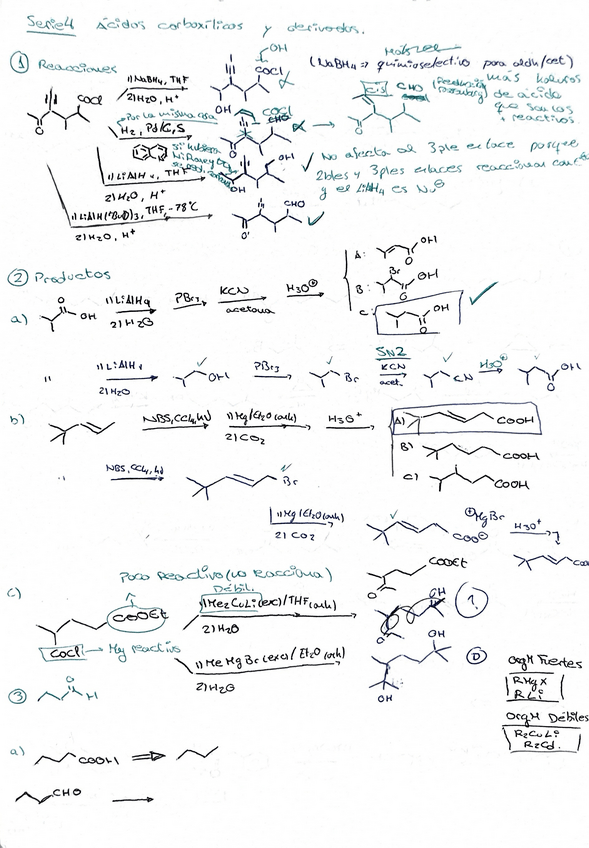 Serie 4 Ácidos carboxílicos y derivados.
① Reacciones
1) NaBH4, THF
2) H2O, H+
COCl
OH
COCl
(NaBH4 => quimioselectivo para aldh/cet)
O
Por la misma cosa
H2, Pd/C, S
OH COCl
CHO
cis CHO
más
de ácido
que sea los
+ reactivos.
1) LiAlH4, THF
2) H2O, H+
OH
No afecta al 3ple enlace porque
2bles y 3ples enlaces reaccionan con
y el LiAlH4 es Nu⊖
1) LiAlH(tBuO)3, THF, -78°C
2) H2O, H+
CHO
O
② Productos
a) O OH
1) LiAlH4
2) H2O
PBr3
KCN
acetona
H3O⊕
A: OH O
B: Br OH O
C: OH O
"
1) LiAlH4
2) H2O
OH
PBr3
Br
SN2
KCN
acet.
CN
H3O⊕
OH
O
b)
NBS, CCl4, hν
1) Mg/Et2O (anh)
2) CO2
H3O+
A) COOH
B) COOH
C) COOH
"
NBS, CCl4, hν
Br
1) Mg/Et2O (anh)
2) CO2
COO⊖ ⊕MgBr
H3O+
Poco reactivo (no reacciona)
Débil
COOEt
c) COOEt
1) Me2CuLi (exc)/THF (anh)
2) H2O
O
OH
1.
COCl → Muy reactivo
1) MeMgBr (exc)/Et2O (anh)
2) H2O
OH
OH
D
OrgM Fuertes
RMgX
RLi
OrgM Débiles
R2CuLi
R2Cd.
③ O H
a) COOH
CHO